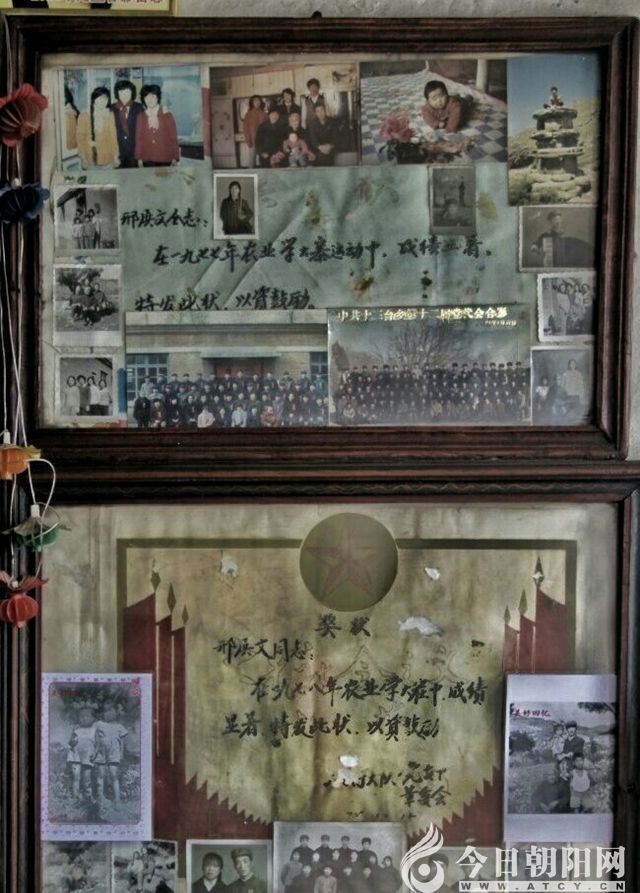 邢溪文同志：
在一九七七年农业学大寨运动中，成绩显著。
特发此状，以资鼓励
中共十二台 第十二届党代会合影
奖状
邢溪文同志：
在一九七八年农业学大寨中成绩
显著，特发此状，以资鼓励
大队
革委会
美好回忆
今日朝阳网
WWW.ATCY.CN